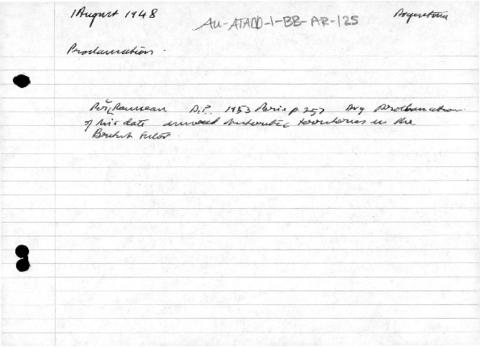 1 August 1948 AU-ATADD-1-BB-AR-125 Argentina
Proclamation.
D.P. 1953 Paris p 257 Arg Proclamation
of this date Antarctic territories in the
British